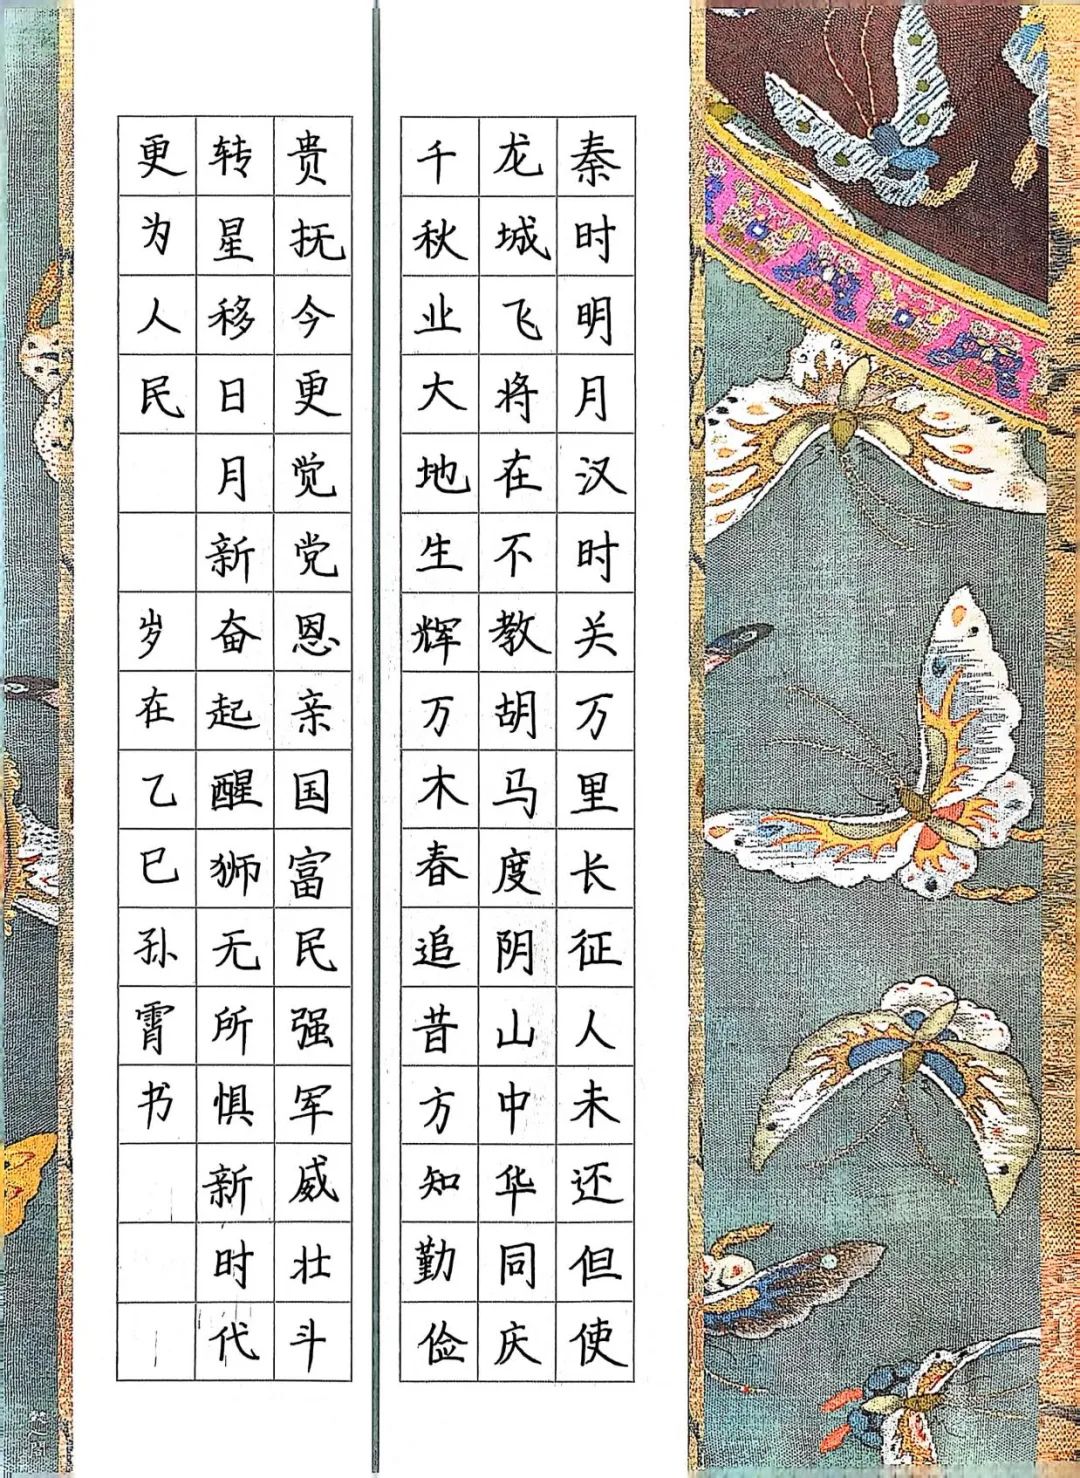 秦时明月汉时关万里长征人未还但使
龙城飞将在不教胡马度阴山中华同庆
千秋业大地生辉万木春追昔方知勤俭
贵抚今更觉党恩亲国富民强军威壮斗
转星移日月新奋起醒狮无所惧新时代
更为人民 岁在乙巳孙霄书